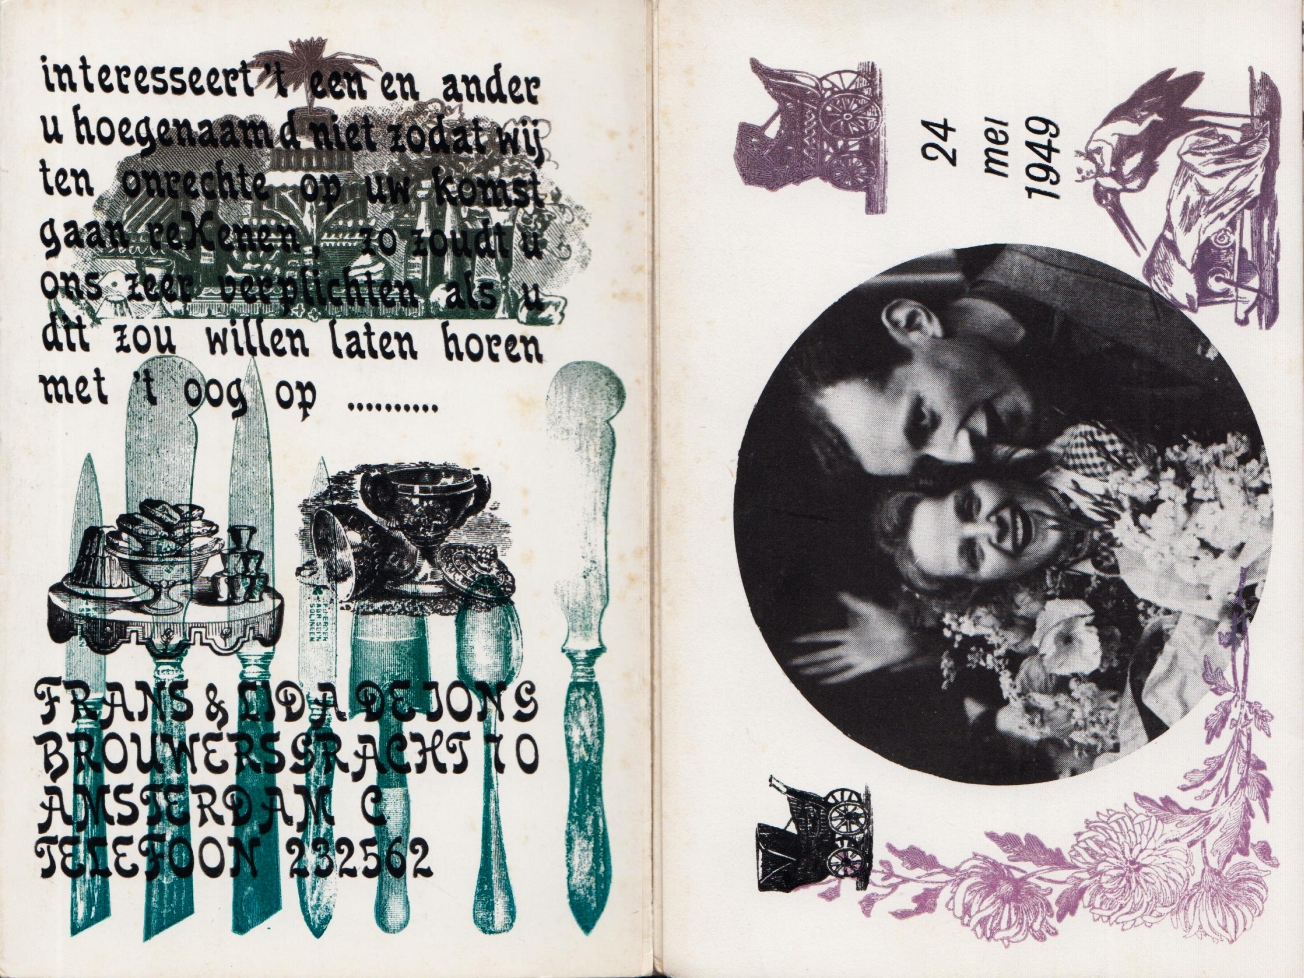 interesseert 't een en ander
u hoegenaamd niet zodat wij
ten onrechte op uw komst
gaan rekenen, zo zoudt u
ons zeer verplichten als u
dit zou willen laten horen
met 't oog op ..........
FRANS & LIDA DE JONG
BROUWERSGRACHT 70
AMSTERDAM C
TELEFOON 232562
24
mei
1949